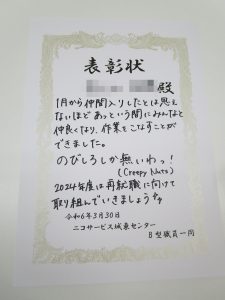 表彰状
殿
1月から仲間入りしたとは思え
ないほどあっという間にみんなと
仲良くなり、作業をこなすことが
できました。
のびしろしか無いわっ!
(Creepy Nuts)
2024年度は再就職に向けて
取り組んでいきましょう
令和6年3月30日
ニコサービス城東センター
B型職員一同